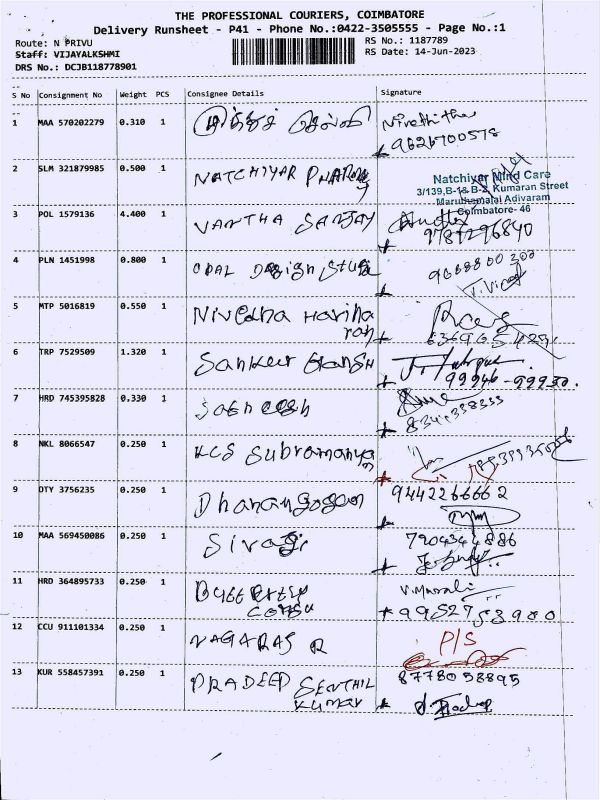 THE PROFESSIONAL COURIERS, COIMBATORE
Delivery Runsheet - P41 - Phone No.:0422-3505555 - Page No.:1
Route: N PRIVU
RS No.: 1187789
Staff: VIJAYALKSHMI
RS Date: 14-Jun-2023
DRS No.: DCJB118778901
S No Consignment No Weight PCS Consignee Details Signature
1 MAA 570202279 0.310 1 Nivethitha
9626700578
2 SLM 321879985 0.500 1 NATCHIYAR
Natchiyar Mind Care
3/139,B-1& B-2, Kumaran Street
Maruthamalai Adivaram
Coimbatore- 46
3 POL 1579136 4.400 1 VANTHA SANJAY
9787296840
4 PLN 1451998 0.800 1 OPAL Design
5 MTP 5016819 0.550 1 Nivedha Hariha
ran
6 TRP 7529509 1.320 1 Sanker
99946-99930.
7 HRD 745395828 0.330 1
8 NKL 8066547 0.250 1 KCS Subramanya
n
9 DTY 3756235 0.250 1 9442266662
10 MAA 569450086 0.250 1 Sivaji
7904344886
11 HRD 364895733 0.250 1 V.Murali
9952753980
12 CCU 911101334 0.250 1 NAGARAS R P/S
13 KUR 558457391 0.250 1 PRADEEP SENTHIL
KUMAR
8778058895